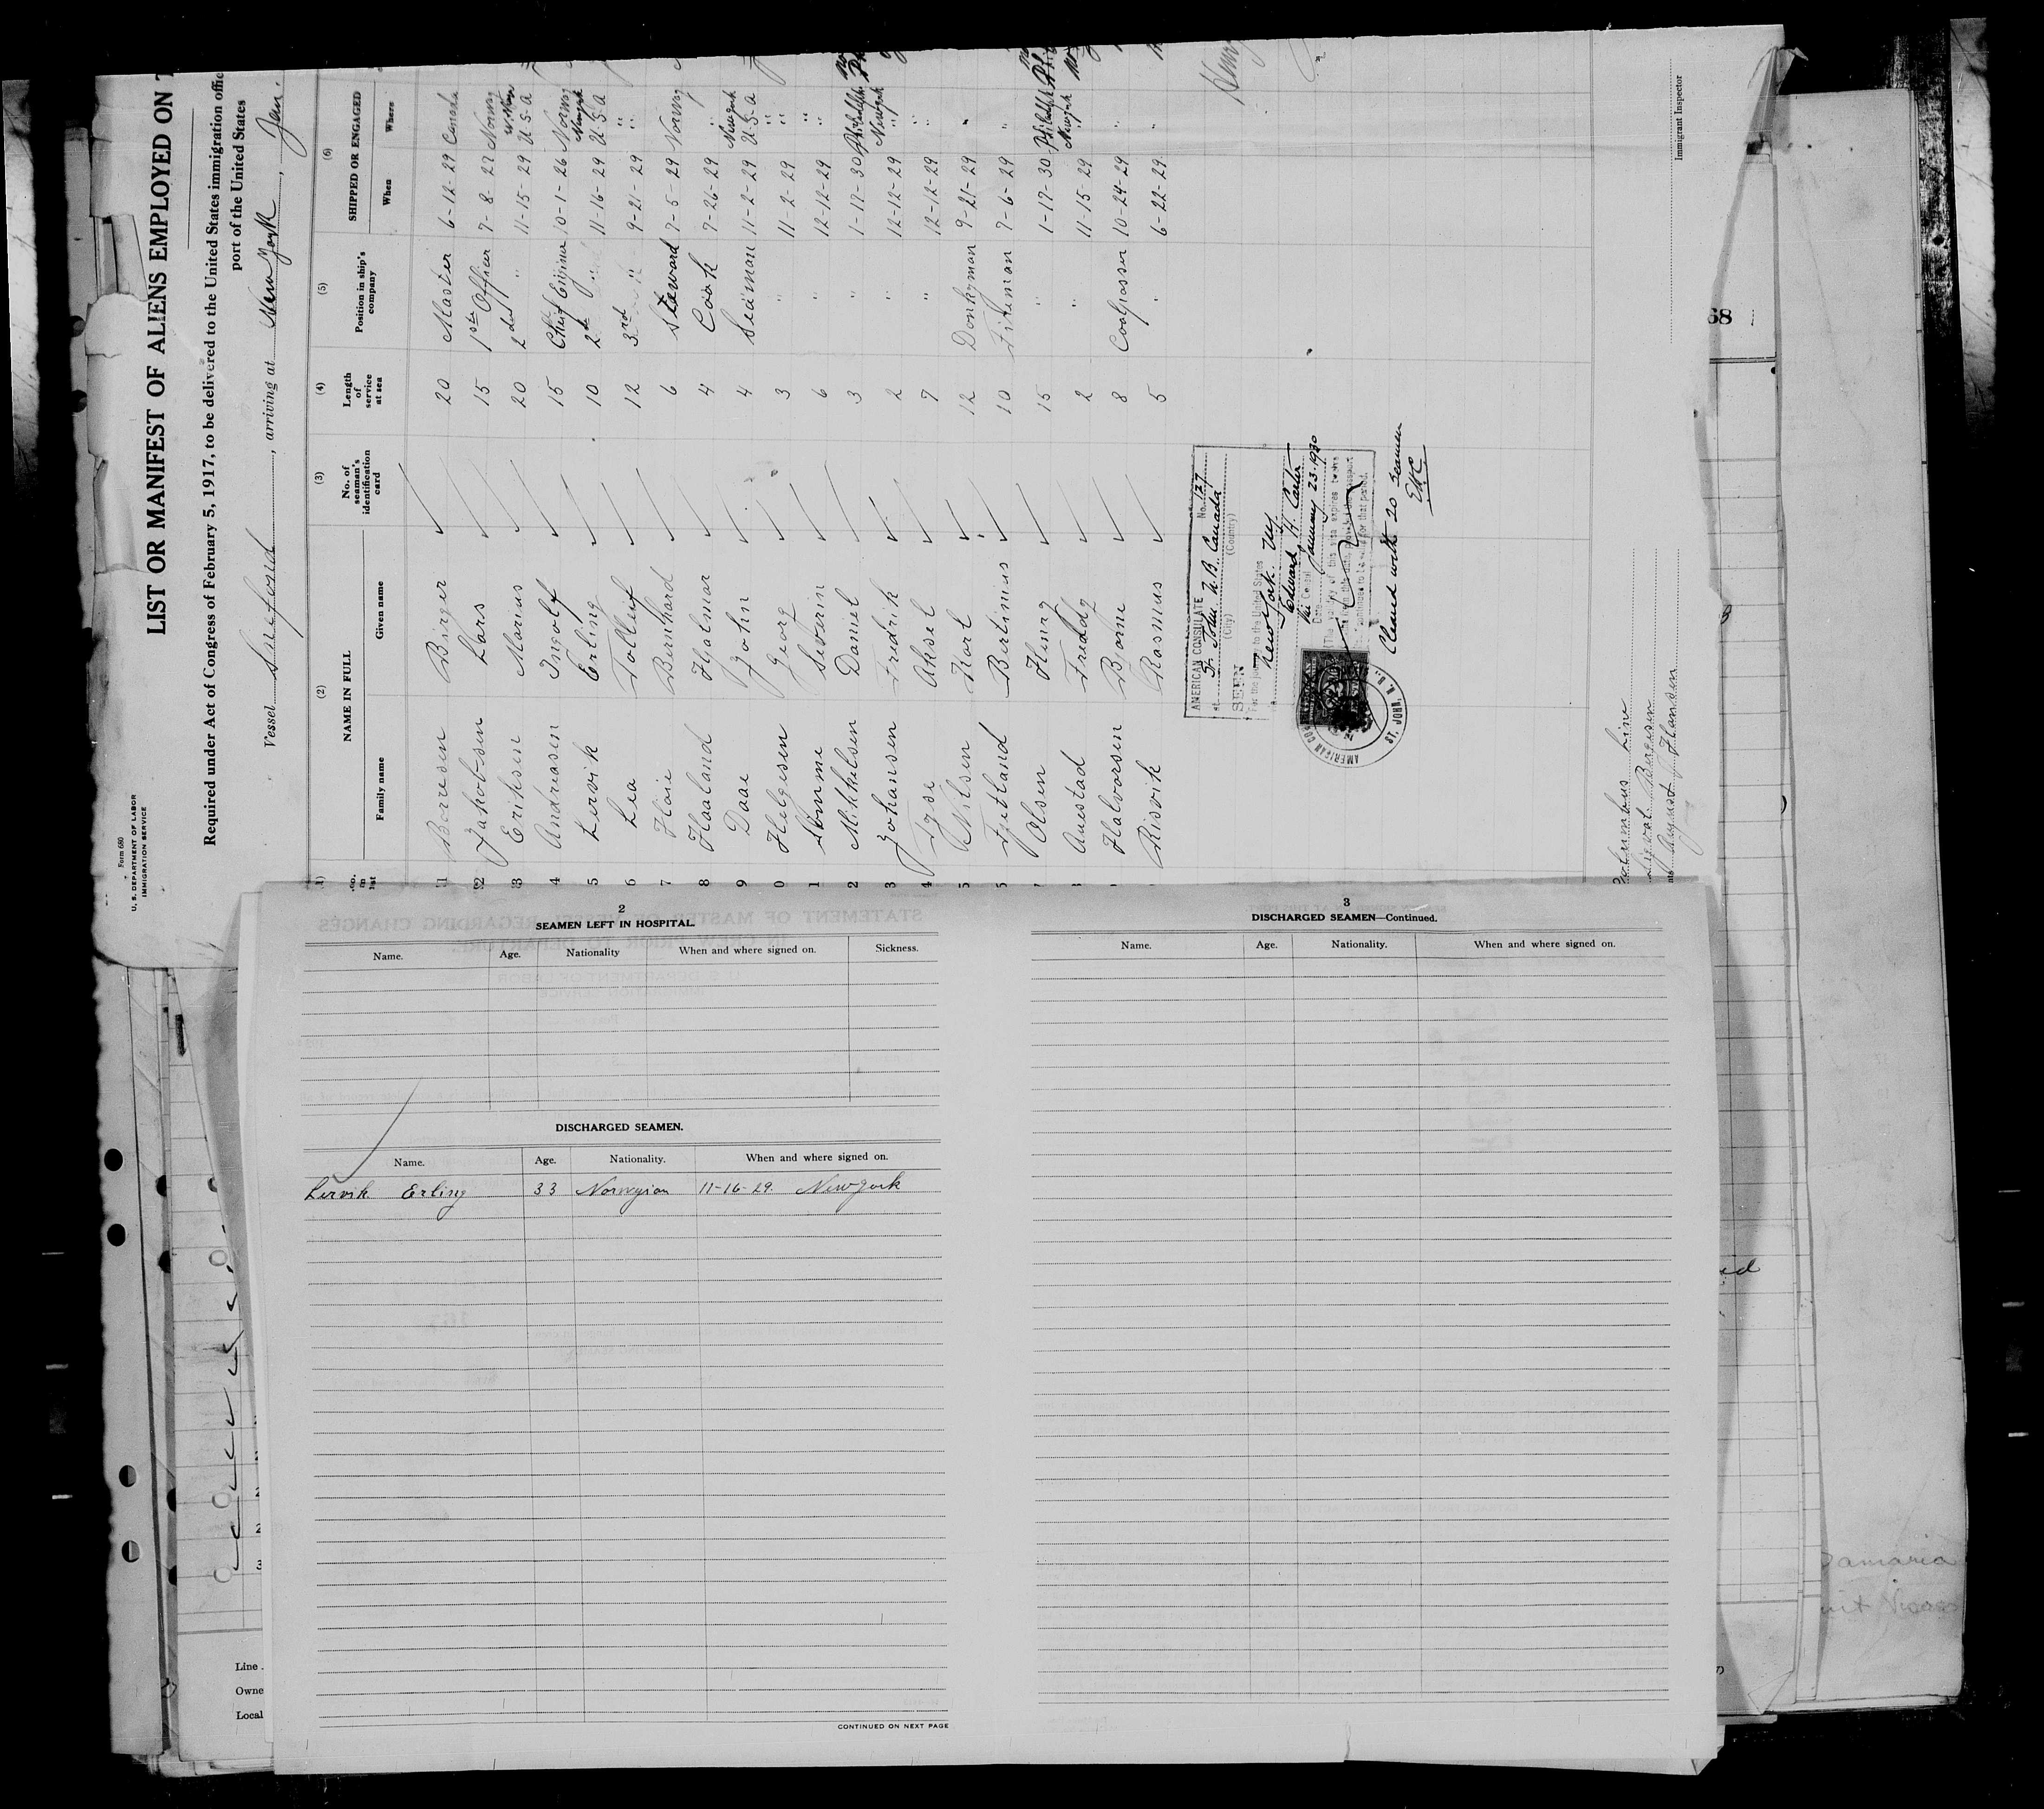 Form 680
U. S. DEPARTMENT OF LABOR
IMMIGRATION SERVICE
LIST OR MANIFEST OF ALIENS EMPLOYED ON
Required under Act of Congress of February 5, 1917, to be delivered to the United States immigration offic
port of the United States
Vessel , arriving at New York , Jan.
(2) (3) (4) (5) (6)
NAME IN FULL No. of seaman's identification card Length of service at sea Position in ship's company SHIPPED OR ENGAGED
Family name Given name When Where
1 Borresen Birger 20 Master 6-12-29 Canada
2 Jakobsen Lars 15 1ste Officer 7-8-27 Norway
3 Eriksen Marius 20 2des " 11-15-29 U.S.A
4 Andreasen Ingolf 15 Chief Engineer 10-1-26 Norway
5 Lervik Erling 10 2d " 11-16-29 New York U.S.A
6 Lea Tolleif 12 3rd " 9-21-29 " "
7 Bernhard 6 Steward 7-5-29 Norway
8 Haaland Hjalmar 4 Cook 7-26-29 "
9 Daae John 4 Seaman 11-2-29 New York U.S.A
0 Helgesen Georg 3 " 11-2-29 " "
1 Sømme Severin 6 " 12-12-29 " "
2 Mikkelsen Daniel 3 " 1-17-30 Philadelphia
3 Johansen Fredrik 2 " 12-12-29 New York
4 Aksel 7 " 12-12-29 "
5 Nilsen Karl 12 Donkyman 9-21-29 "
Fjetland Bertinius 10 Fireman 7-6-29 "
Olsen Henry 15 " 1-17-30 Philadelphia
Anestad Freddy 2 " 11-15-29 New York
Halvorsen Bjarne 8 Coalpasser 10-24-29 "
Risvik Rasmus 5 " 6-22-29 "
AMERICAN CONSULATE No. 127
at St. John N.B. Canada
(City) (Country)
SEEN
For the journey to the United States
New York NY
Edward H. Carter
Vice Consul
Date January 23-1930
The validity of this visa expires twelve
AMERICAN CON ST. JOHN, N.B.
Cleared with 20 seamen
EHC
Columbus Line
Sigval Bergesen
August J. Hansen
Immigrant Inspector
68
2
SEAMEN LEFT IN HOSPITAL.
Name. Age. Nationality When and where signed on. Sickness.
DISCHARGED SEAMEN.
Name. Age. Nationality. When and where signed on.
Lervik Erling 33 Norwegian 11-16-29. New York
CONTINUED ON NEXT PAGE
3
DISCHARGED SEAMEN—Continued.
Name. Age. Nationality. When and where signed on.
Line
Owne
Local